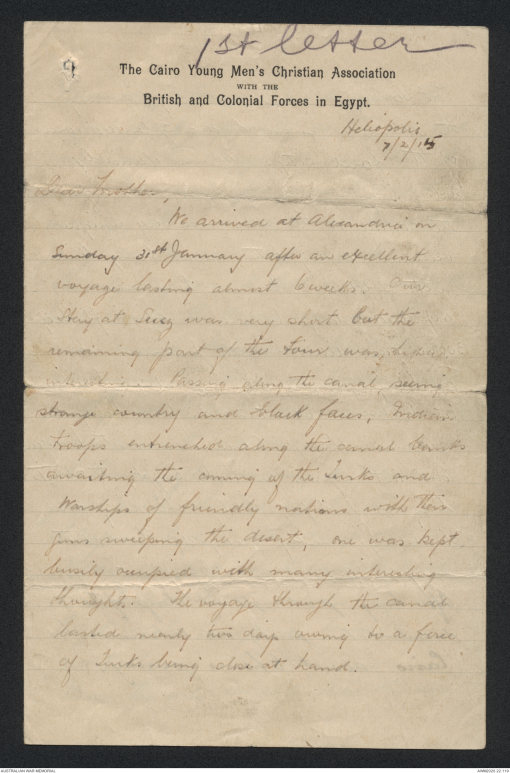 1st letter
9
The Cairo Young Men's Christian Association
WITH THE
British and Colonial Forces in Egypt.
Heliopolis
7/2/15
Dear Mother,
We arrived at Alexandria on
Sunday 31st January after an excellent
voyage lasting almost 6 weeks. Our
stay at Suez was very short but the
remaining part of the Tour was,
interesting. Passing along the canal, seeing
strange country and black faces, Indian
troops entrenched along the canal banks
awaiting the coming of the Turks and
Warships of friendly nations with their
guns sweeping the desert, one was kept
busily occupied with many interesting
thoughts. The voyage through the canal
lasted nearly two days owing to a force
of Turks being close at hand.
AUSTRALIAN WAR MEMORIAL